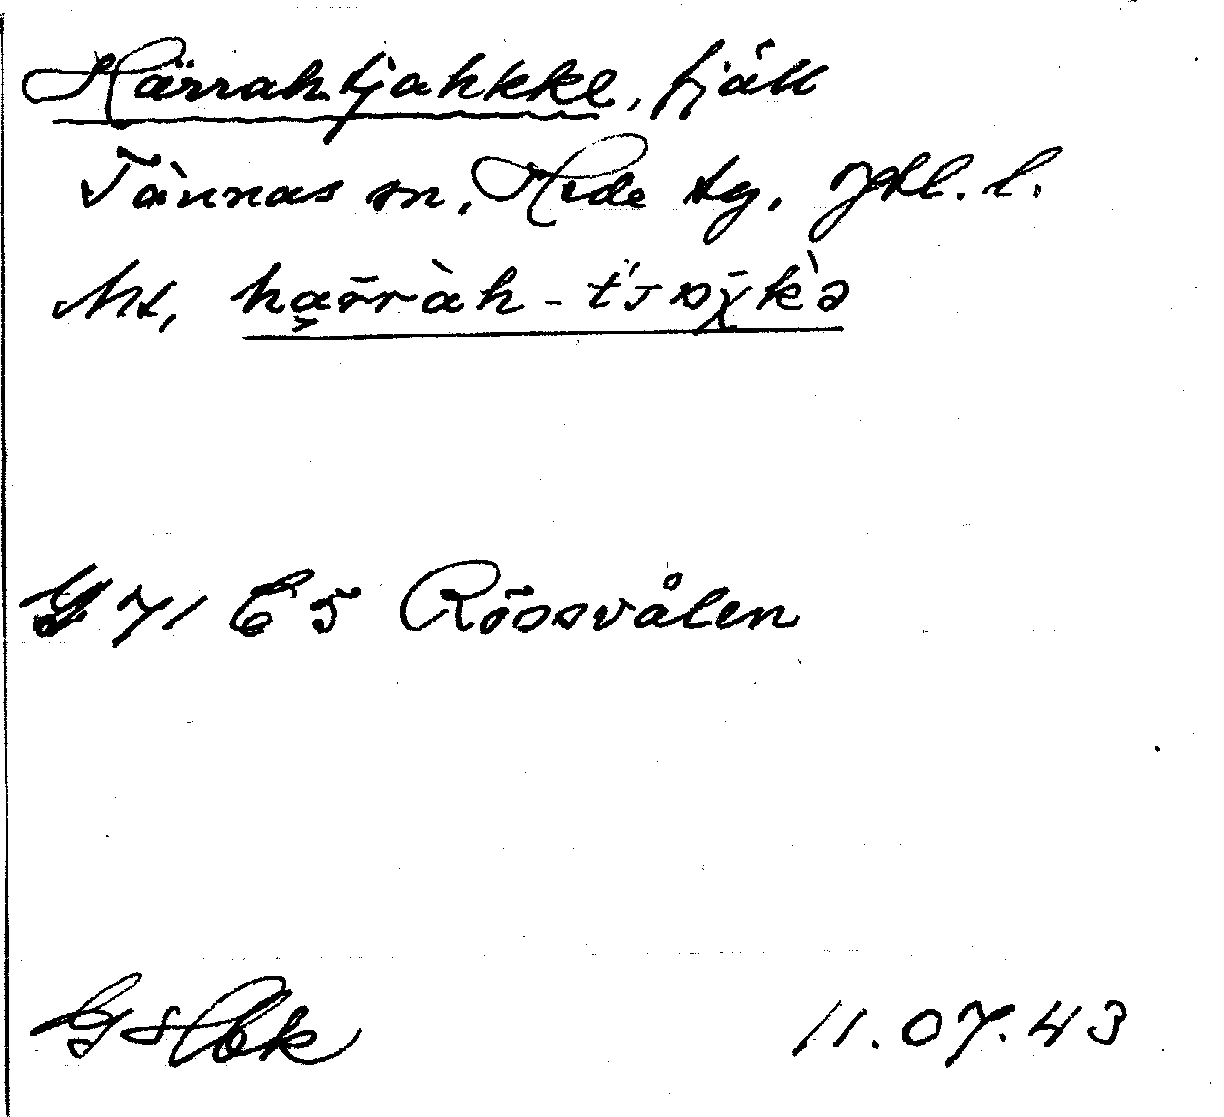 Härrahtjahkke, fjäll
Tännäs sn. Hede tg. Jtl. l.
Ut, ha̧r̄ràh - t'sɒχ̄k̀ə
G 71 E 5 Rössvålen
11.07.43